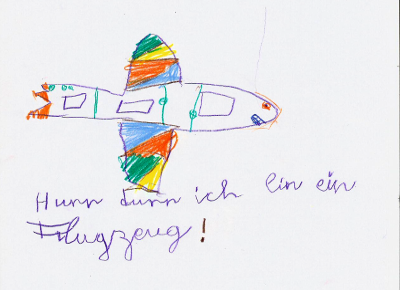 Hurr durr ich bin ein
Flugzeug!